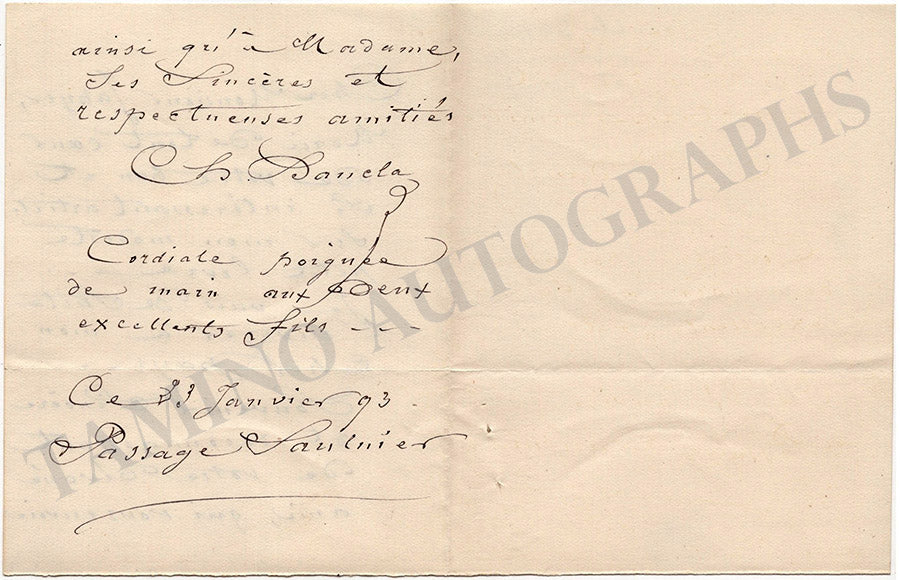 ainsi qu'à Madame,
Ses Sincères et
respectueuses amitiés
Ch. Dancla
Cordiale poignée
de main aux Deux
excellents fils
Ce 23 Janvier 93
Passage Saulnier
TAMINO AUTOGRAPHS